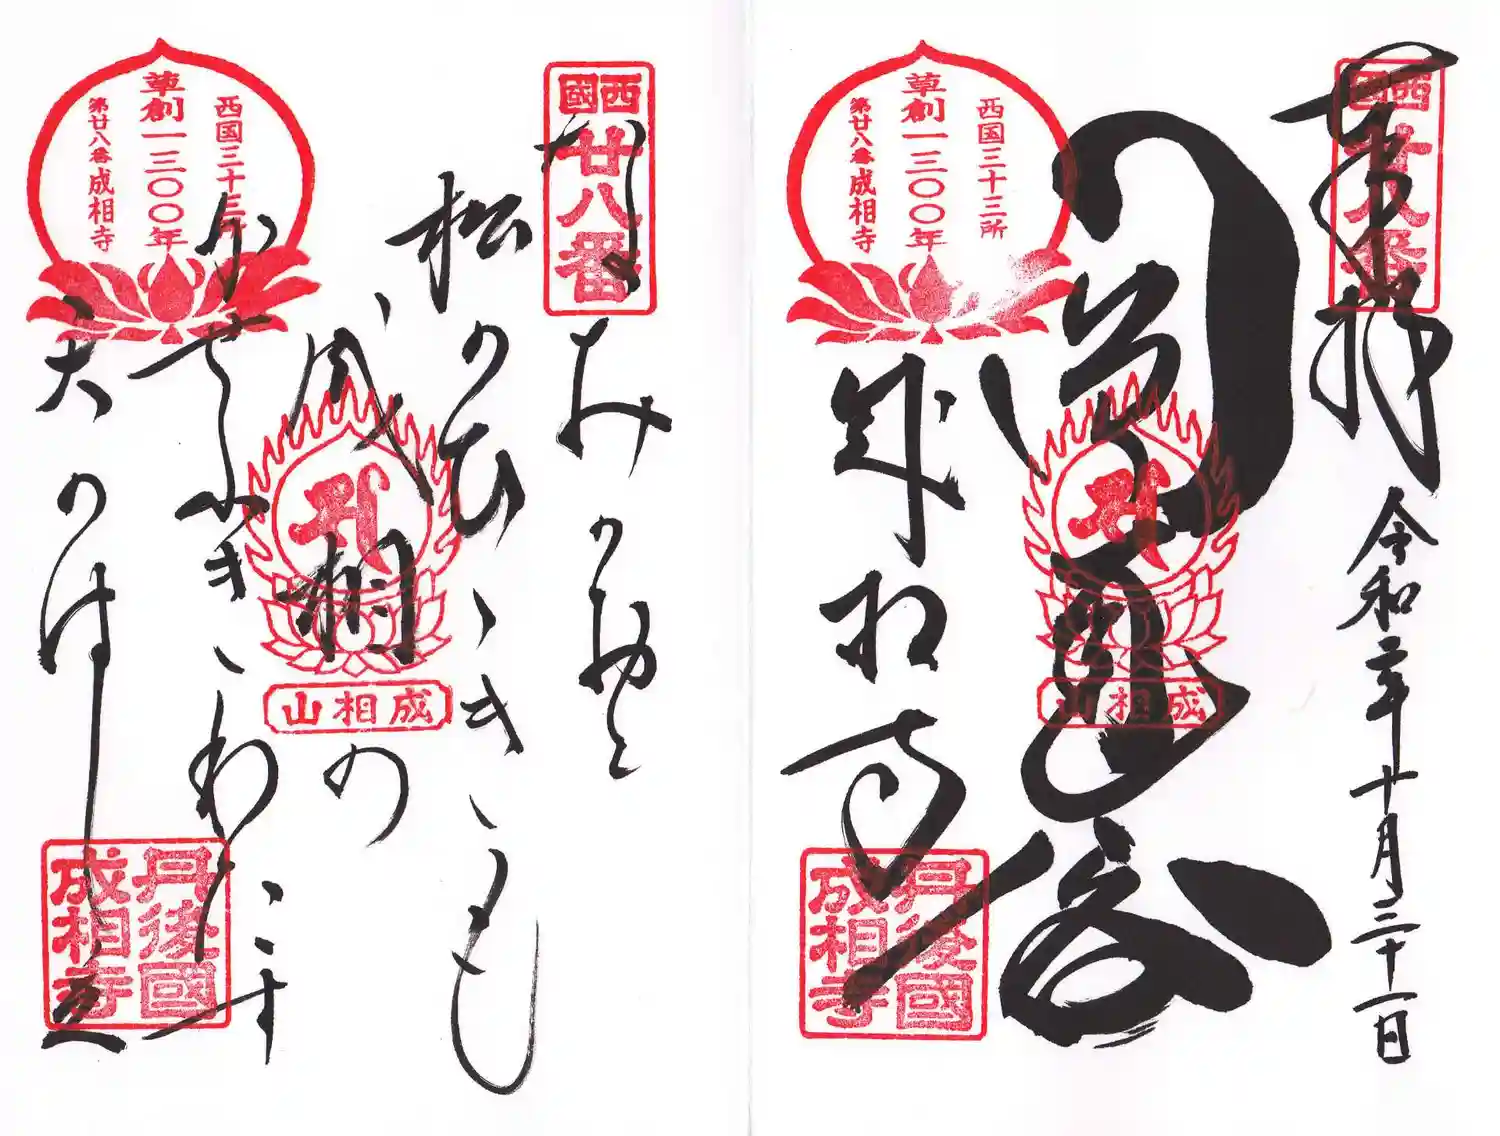 奉拝
令和二年十月三十一日
西國
廿八番
成相山
成相寺
西国三十三所
草創一三〇〇年
第廿八番成相寺
丹後國
成相寺
西國
廿八番
なみのおと
松のひゝきも
成相の
成相山
かせふきわたす
天のはし立
西国三十三所
草創一三〇〇年
第廿八番成相寺
丹後國
成相寺